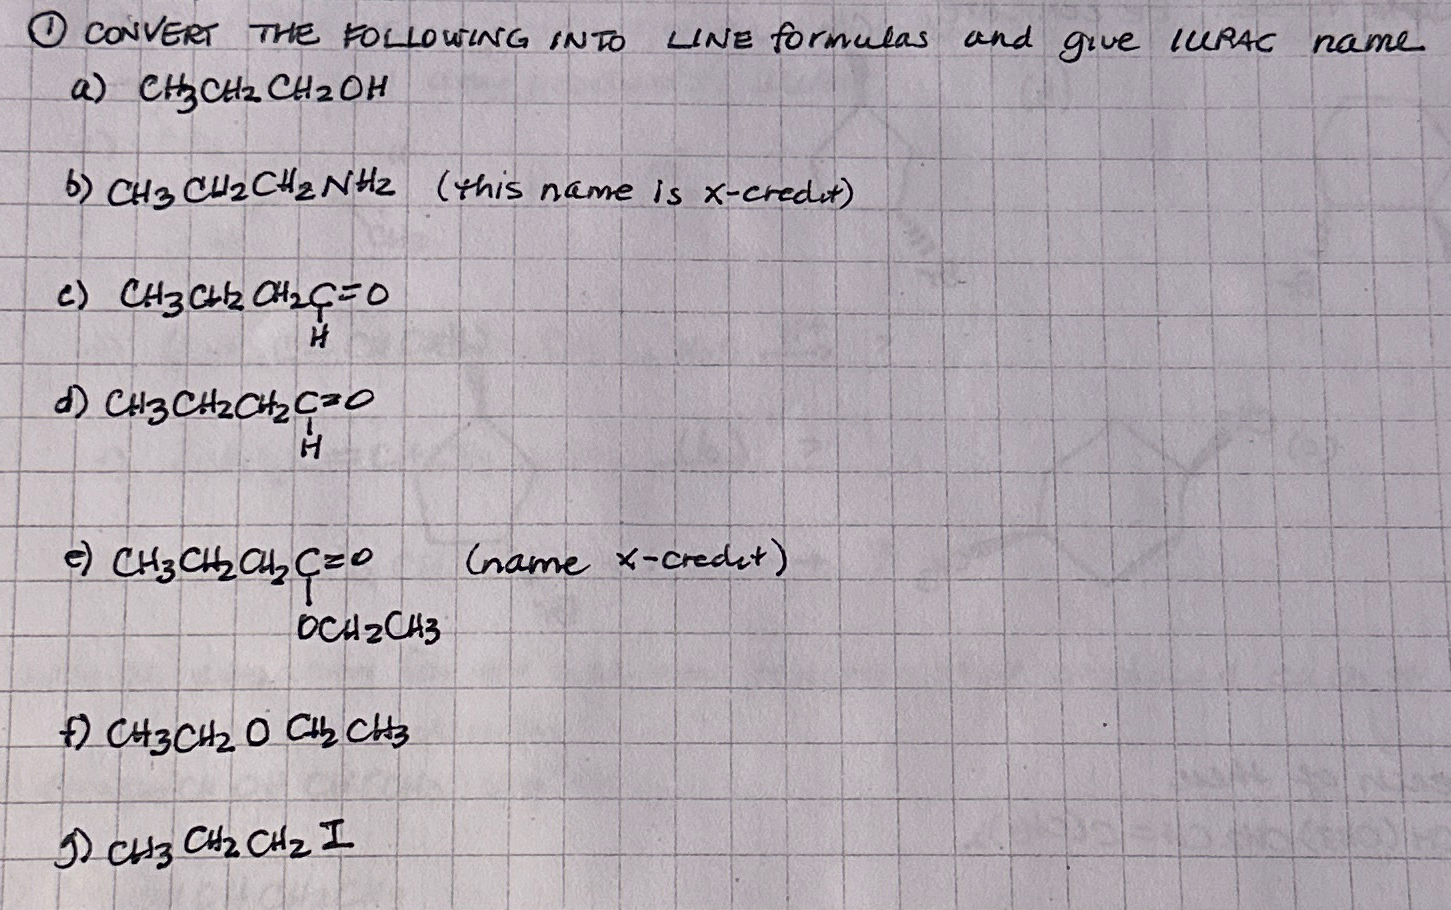 ① CONVERT THE FOLLOWING INTO LINE formulas and give IUPAC name
a) CH3CH2CH2OH
b) CH3CH2CH2NH2 (this name is x-credit)
c) CH3CH2CH2C=O
H
d) CH3CH2CH2C=O
H
e) CH3CH2CH2C=O (name x-credit)
OCH2CH3
f) CH3CH2OCH2CH3
g) CH3CH2CH2I